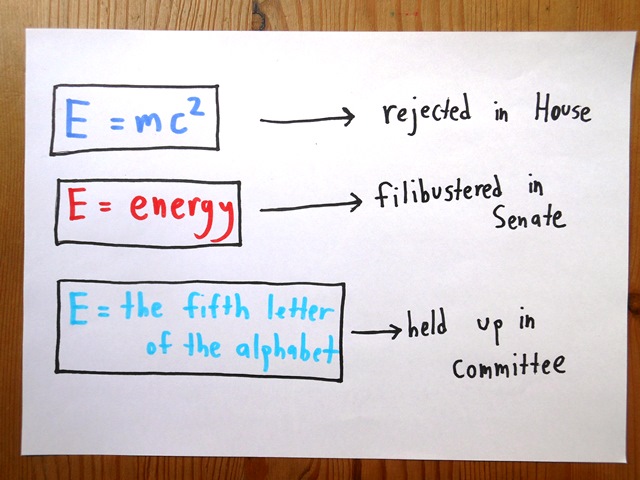 E = mc²
rejected in House
E = energy
filibustered in
Senate
E = the fifth letter
of the alphabet
held up in
committee